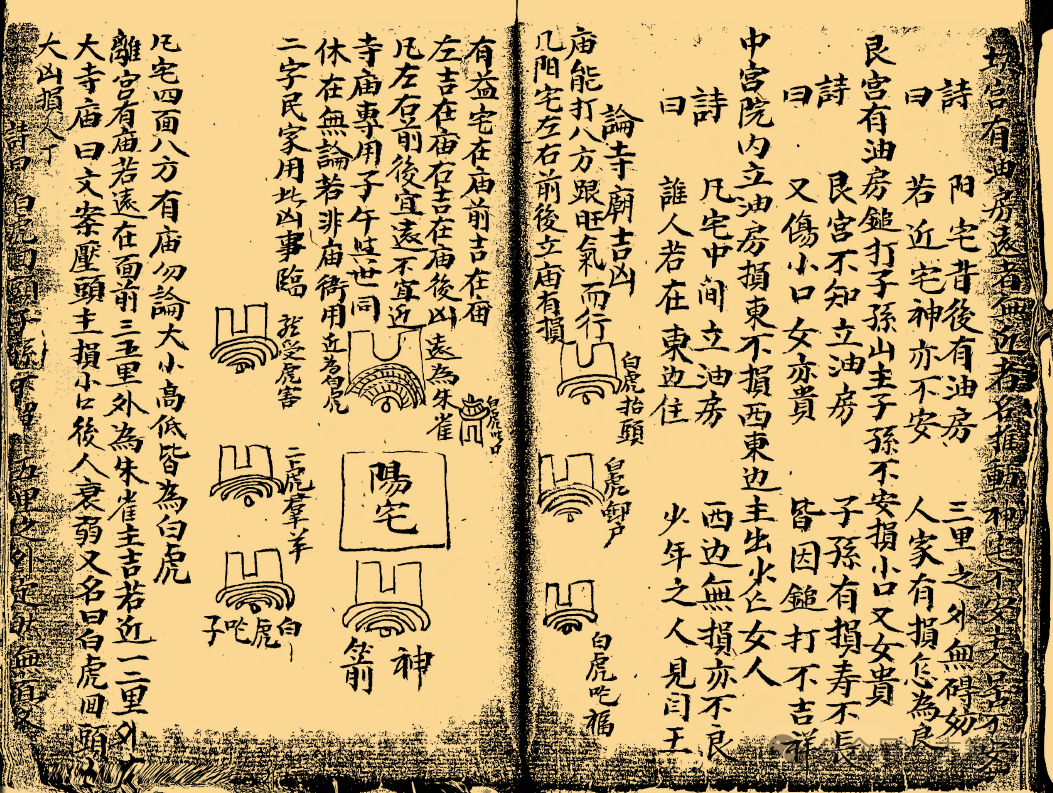 坎宮有油房遠者無近者名推動神宅不安大
詩曰
陽宅背後有油房
三里之外無碍妨
若近宅神亦不安
人家有損怎為良
艮宮有油房鎚打子孫山主子孫不安損小口又女貴
詩曰
艮宮不知立油房
子孫有損寿不長
又傷小口女亦貴
皆因鎚打不吉祥
中宮院内立油房損東不損西東边主出火亡女人
詩曰
凡宅中间立油房
西边無損亦不良
誰人若在東边住
少年之人見闫王
論寺廟吉凶
庙能打八方跟旺氣而行
凡阳宅左右前後立庙有損
白虎抬頭
白虎卸尸
白虎吃福
有益宅在庙前吉在庙
左吉在庙右吉在庙後凶
凡左右前後宜遠不宜近
寺庙專用子午與世同
休在無論若非庙衙用
二字民家用此凶事臨
遠為朱雀
近為白虎
白虎吃口
陽宅
神前
於受虎害
二虎羣羊
白虎吃子
凡宅四面八方有庙勿論大小高低皆為白虎
離宮有庙若遠在面前三五里外為朱雀主吉若近一二里外有
大寺庙曰文案壓頭主損小口後人衰弱又名曰白虎回頭
大凶損人丁
詩曰
白虎回頭子孫
五里之外定然無